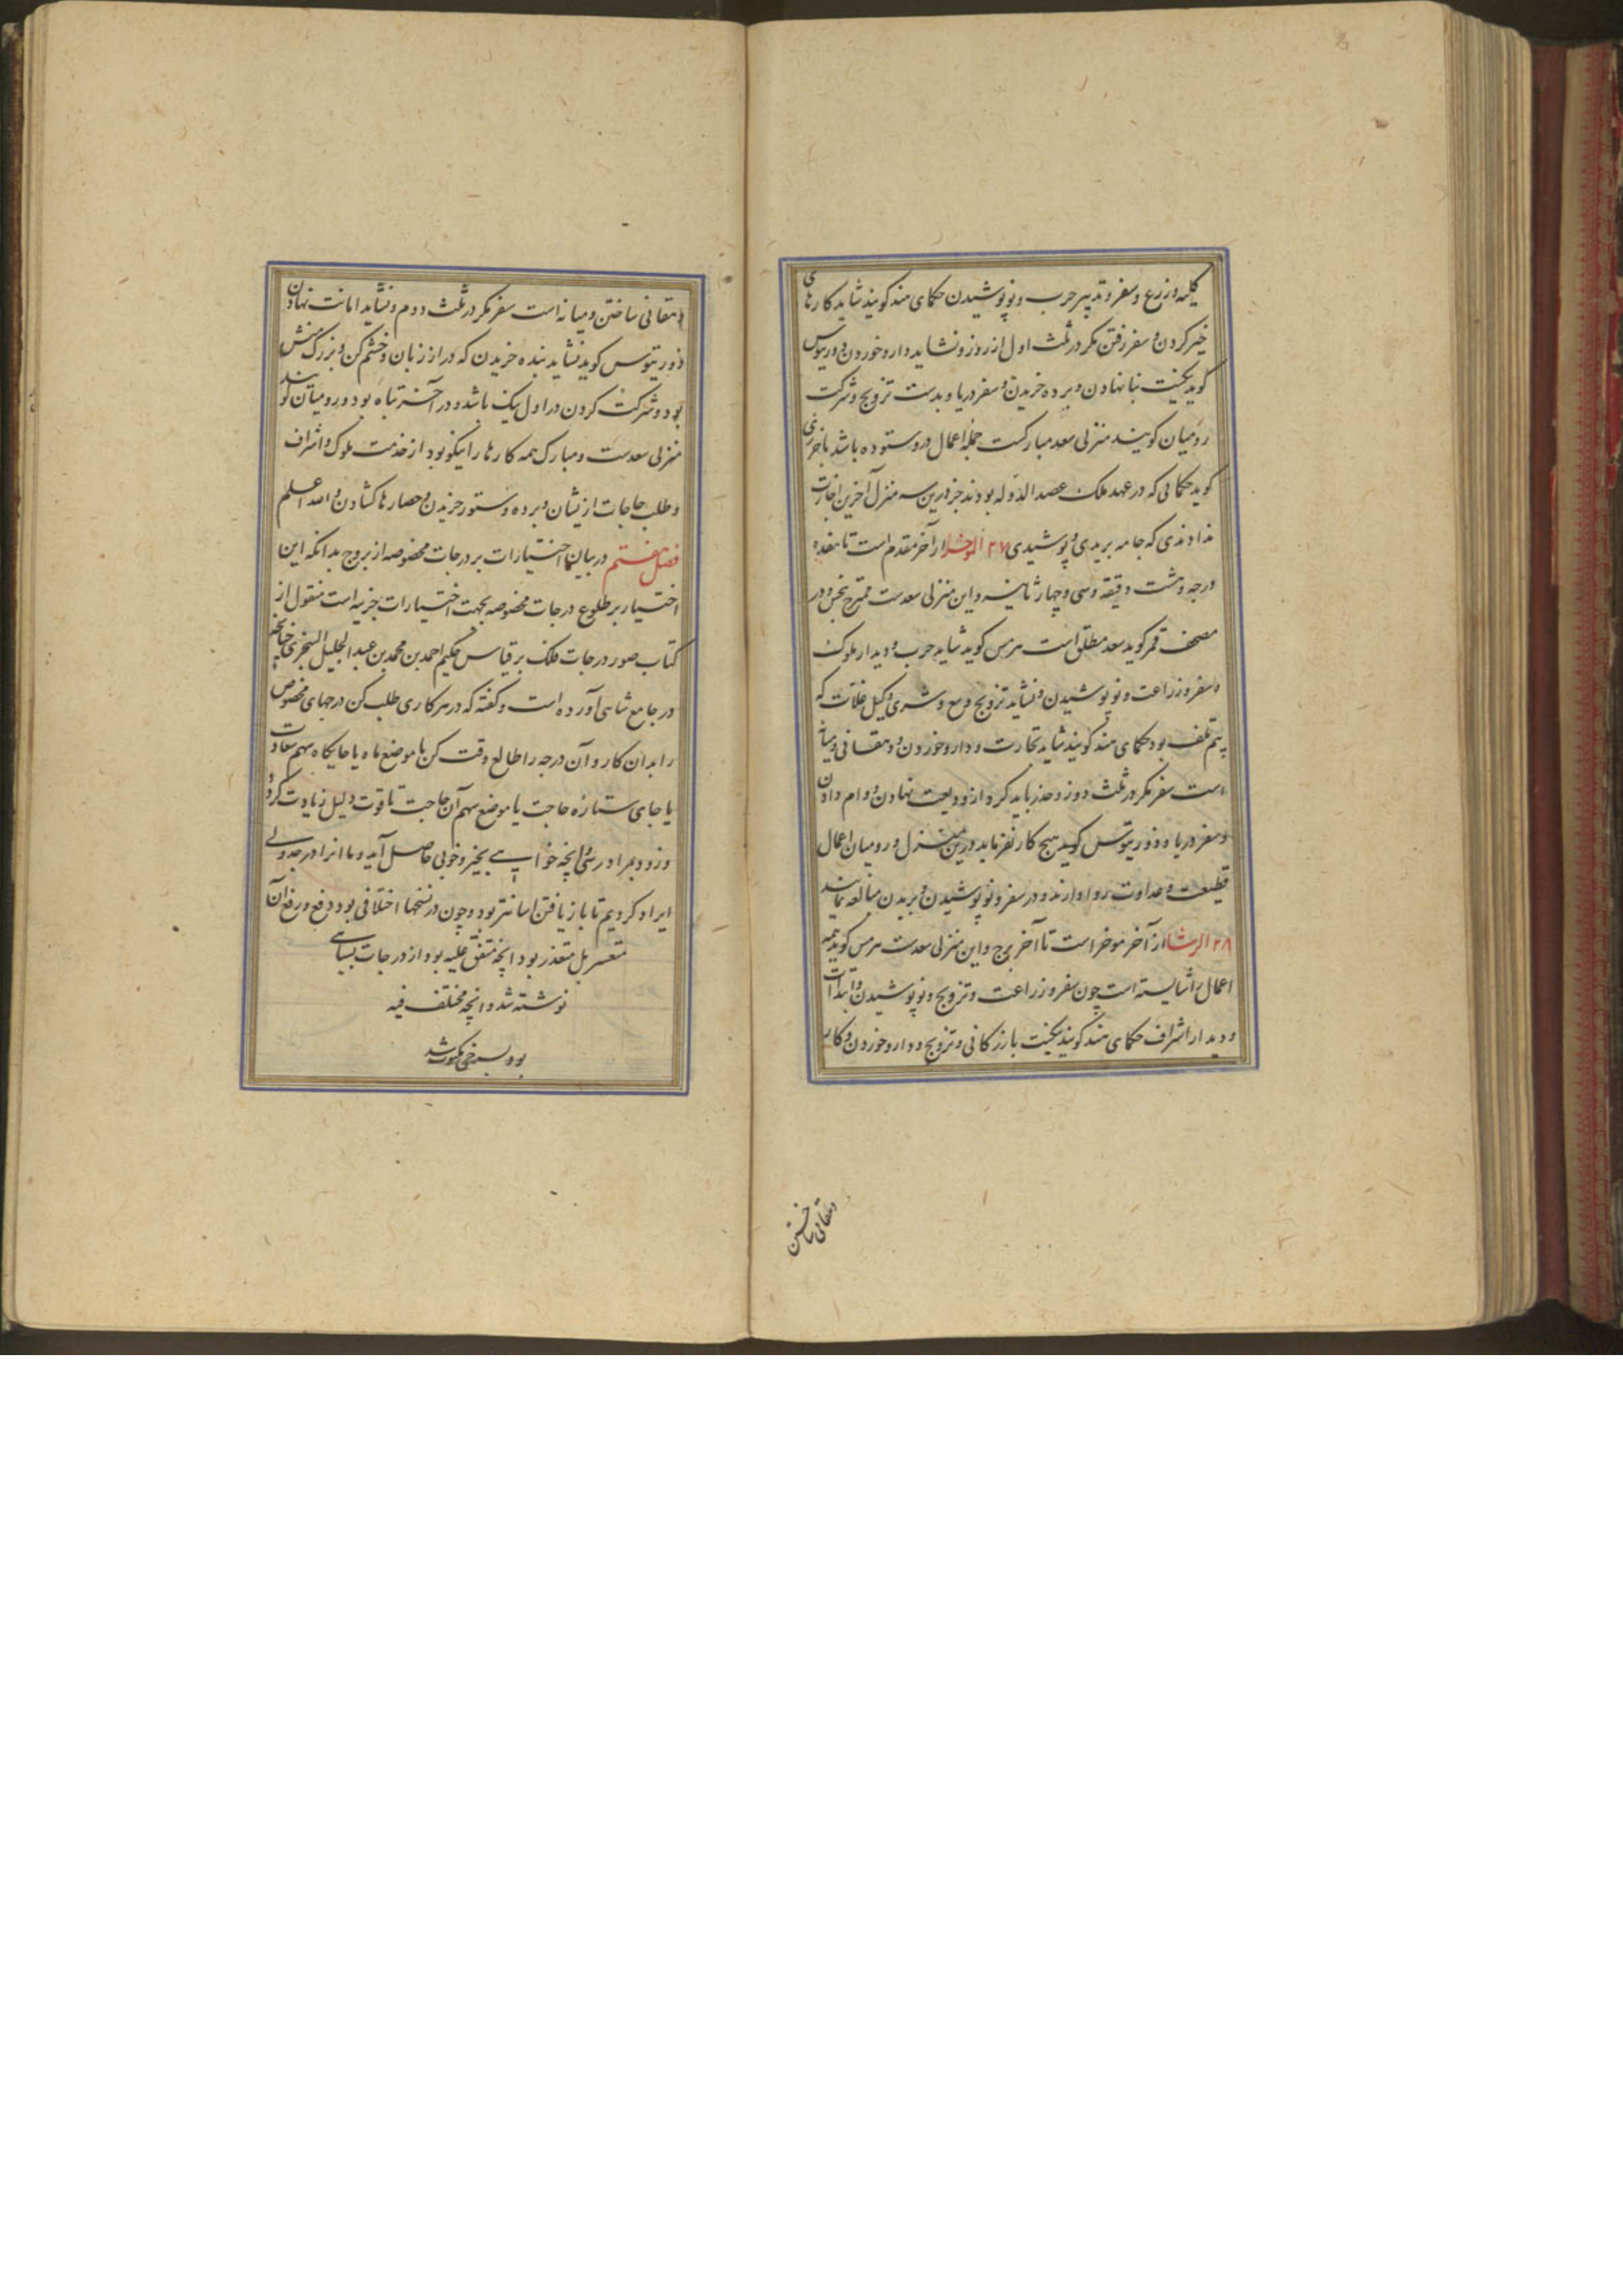 کلیه از زرع و سفر و تدبیر حرب و نو پوشیدن حکمای هند کویند شاید کارهای
خیر کردن و سفر رفتن مکر در ثلث اول از روز و نشاید دارو خوردن و ذوریثوس
کوید نیکست بنا نهادن و برده خریدن و سفر دریا و بدست تزویج و شرکت
رومیان کویند منزلی سعد مبارکست جمله اعمال درو ستوده باشد باخرزی
کوید حکمائی که در عهد ملک عضد الدوله بودند جز درین سه منزل آخرین اجازت
ندادندی که جامه بریدی و پوشیدی ۲۷ از آخر مقدم است تا هفده
درجه و هشت دقیقه و سی و چهار ثانیه و این منزلی سعدست ممتزج بنحس و در
مصحف قمر کوید سعد مطلق است هرمس کوید شاید حرب و دیدار ملوک
و سفر و زراعت و نو پوشیدن و نشاید تزویج و بیع و شری و کیل غلات که
بیم تلف بود حکمای هند کویند شاید تجارت و دارو خوردن و دهقانی و میانه
است سفر مکر در ثلث دوز و حذر باید کرد از ودیعت نهادن و وام دادن
و سفر دریا و ذوریثوس کوید هیچ کار نفرماید درین منزل و رومیان اعمال
قطیعت و عداوت روا دارند و در سفر و نو پوشیدن و بریدن مبالغه نمایند
۲۸ الرشا از آخر موخر است تا آخر برج و این منزلی سعدست هرمس کوید همه
اعمال را شایسته است چون سفر و زراعت و تزویج و نو پوشیدن و ابتداات
و دیدار اشراف حکمای هند کویند نیکست بازرکانی و تزویج و دارو خوردن و کار
دهقانی ساختن
دهقانی ساختن و میانه است سفر مکر در ثلث دوم و نشاید امانت نهادن
ذوریثوس کوید نشاید بنده خریدن که دراز زبان و خشم کن و بزرک منش
بود و شرکت کردن در اول نیک باشد و در آخر تباه بود و رومیان کویند
منزلی سعدست و مبارک همه کارها را نیکو بود از خدمت ملوک و اشراف
و طلب حاجات ازیشان و برده و ستور خریدن و حصارها کشادن و الله اعلم
فصل هفتم در بیان اختیارات بر درجات مخصوصه از بروج بدانکه این
اختیار بر طلوع درجات مخصوصه بجهت اختیارات جزییه است منقول از
کتاب صور درجات فلک بر قیاس حکیم احمد بن محمد بن عبد الجلیل السنجری چنانچه
در جامع شاهی آورده است و کفته که در هر کاری طلب کن درجهای مخصوص
را بدان کار و آن درجه را طالع وقت کن یا موضع ماه یا جایکاه سهم سعادت
یا جای ستاره حاجت یا موضع سهم آن حاجت تا قوت دلیل زیادت کردد
و زود بمراد رسی و آنچه خواهی بخیر و خوبی حاصل آید و ما انرا در جدولی
ایراد کردیم تا بازیافتن اسانتر بود و چون در نسخها اختلافی بود و رفع و رفع آن
متعسر بل متعذر بود انچه متفق علیه بود از درجات بسیاهی
نوشته شد و انچه مختلف فیه
بود بسرخی مکتوب شد